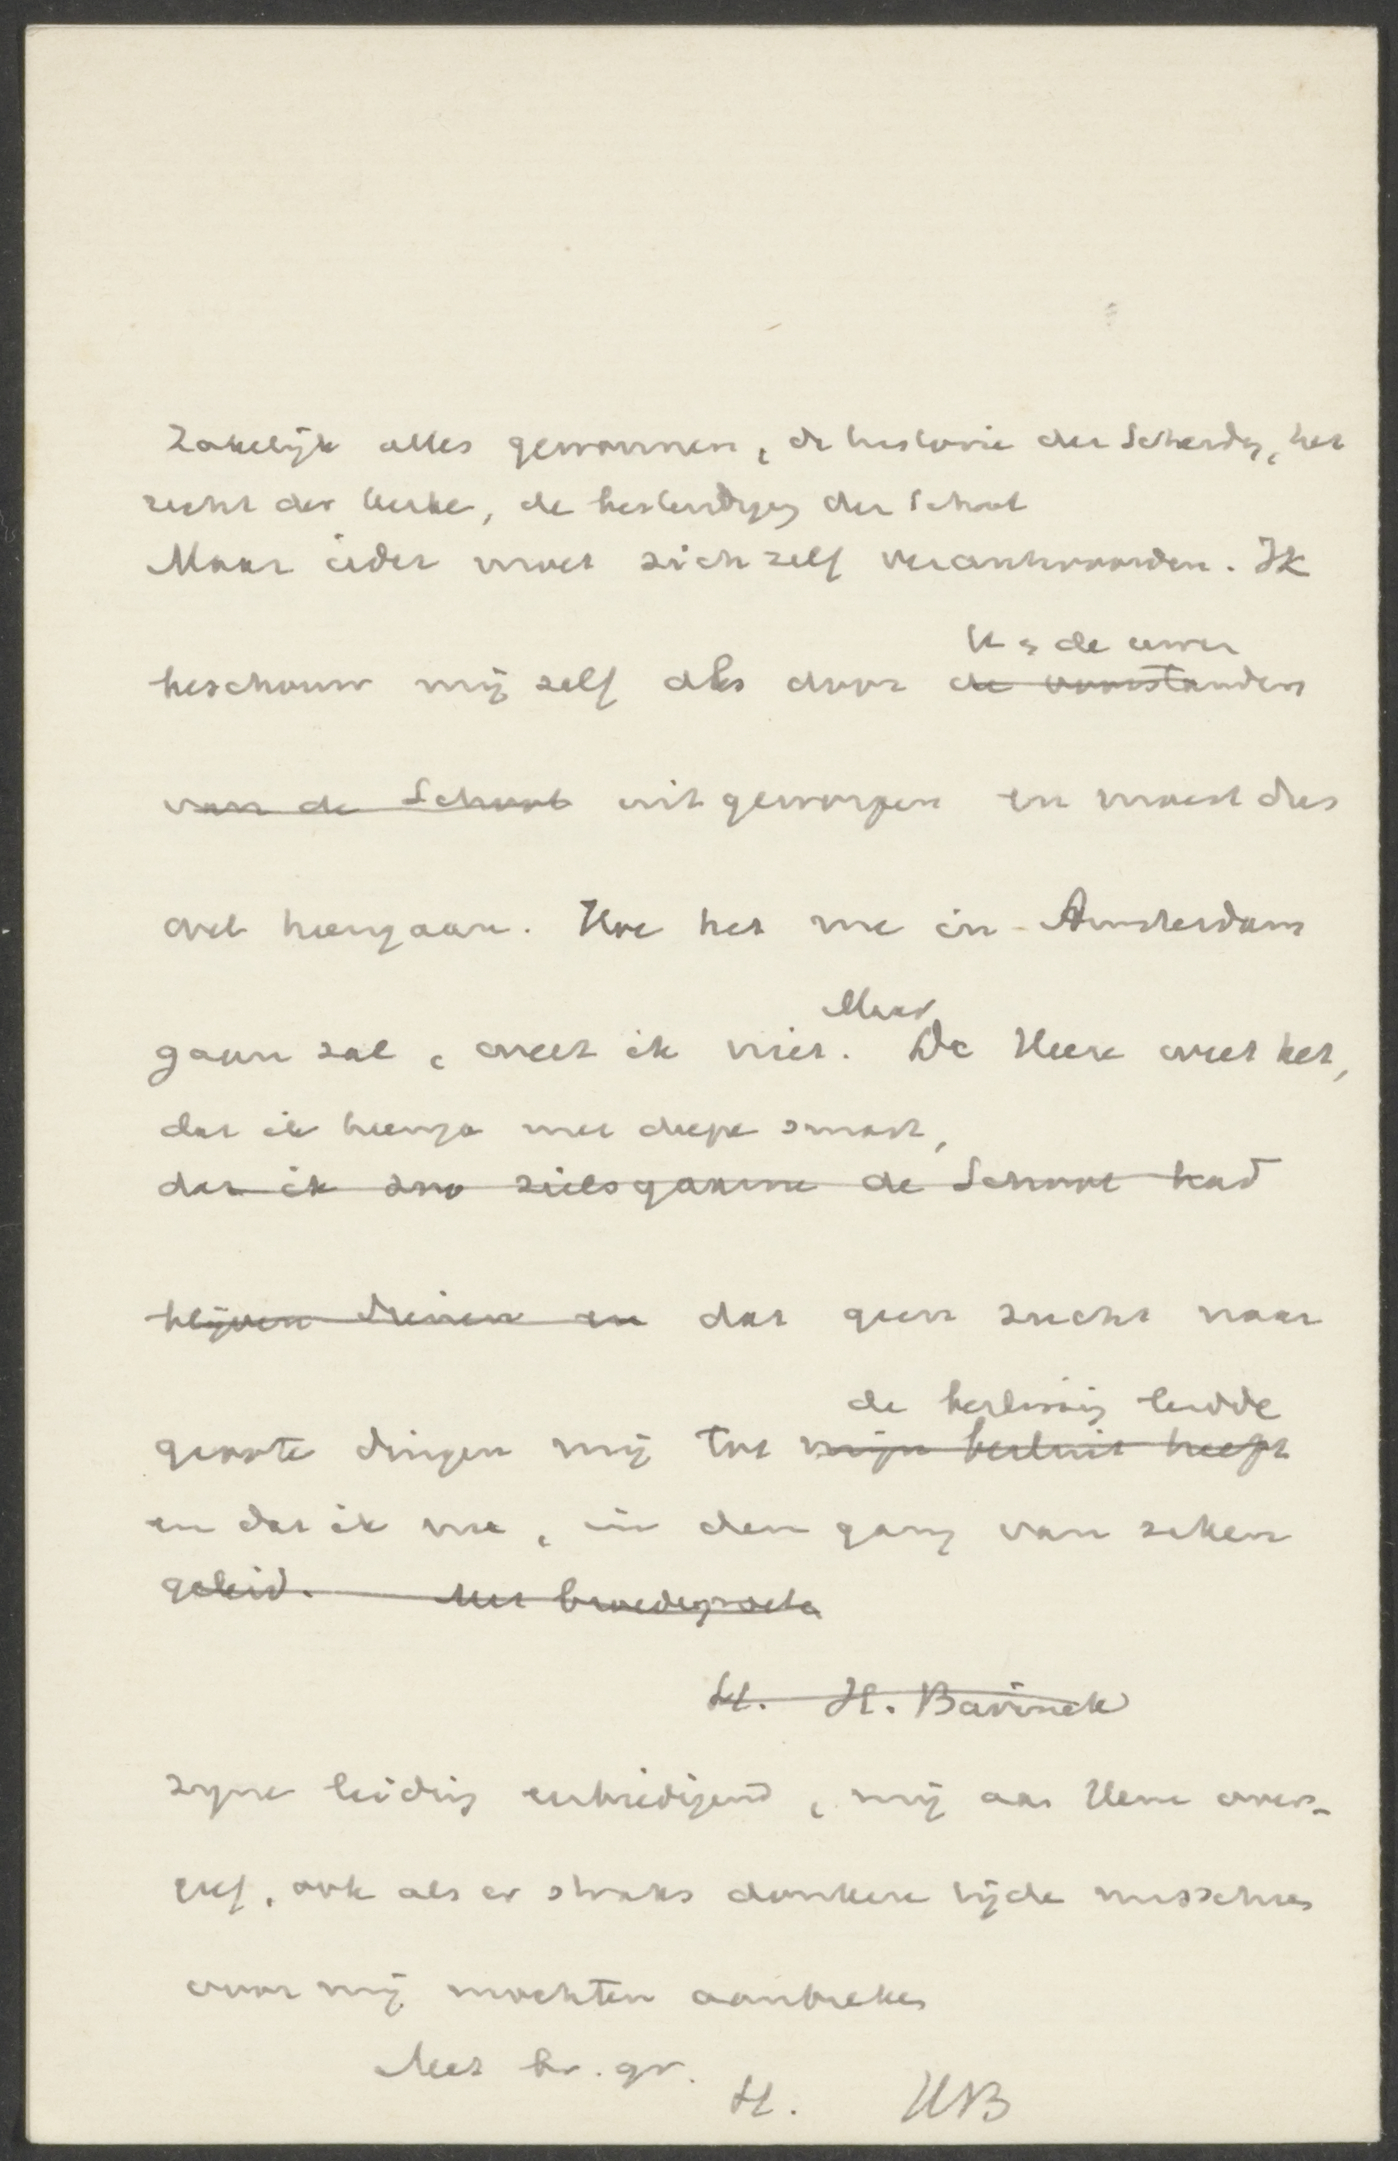 Zakelijk alles gewonnen, de historie der Scheidg, het
recht der Kerke, de bestendigg der School
Maar ieder moet zich zelf verantwoorden. Ik
U & de uwen
beschouw mij zelf als door de voorstanders
van de School uitgeworpen en moest dus
wel heengaan. Hoe het me in Amsterdam
Maar
gaan zal, weet ik niet. De Heere weet het,
dat ik heenga met diepe smart,
dat ik zoo zielsgaarne de School had
blijven dienen en dat geen zucht naar
de beslissing leidde
groote dingen mij tot mijn besluit heeft
en dat ik me, in den gang van zaken
geleid. Met broedergroete
H. Bavinck
zijne leiding eerbiedigend, mij aan Hem over-
geef, ook als er straks donkere tijde misschien
voor mij mochten aanbreken
Met br. gr.
HB